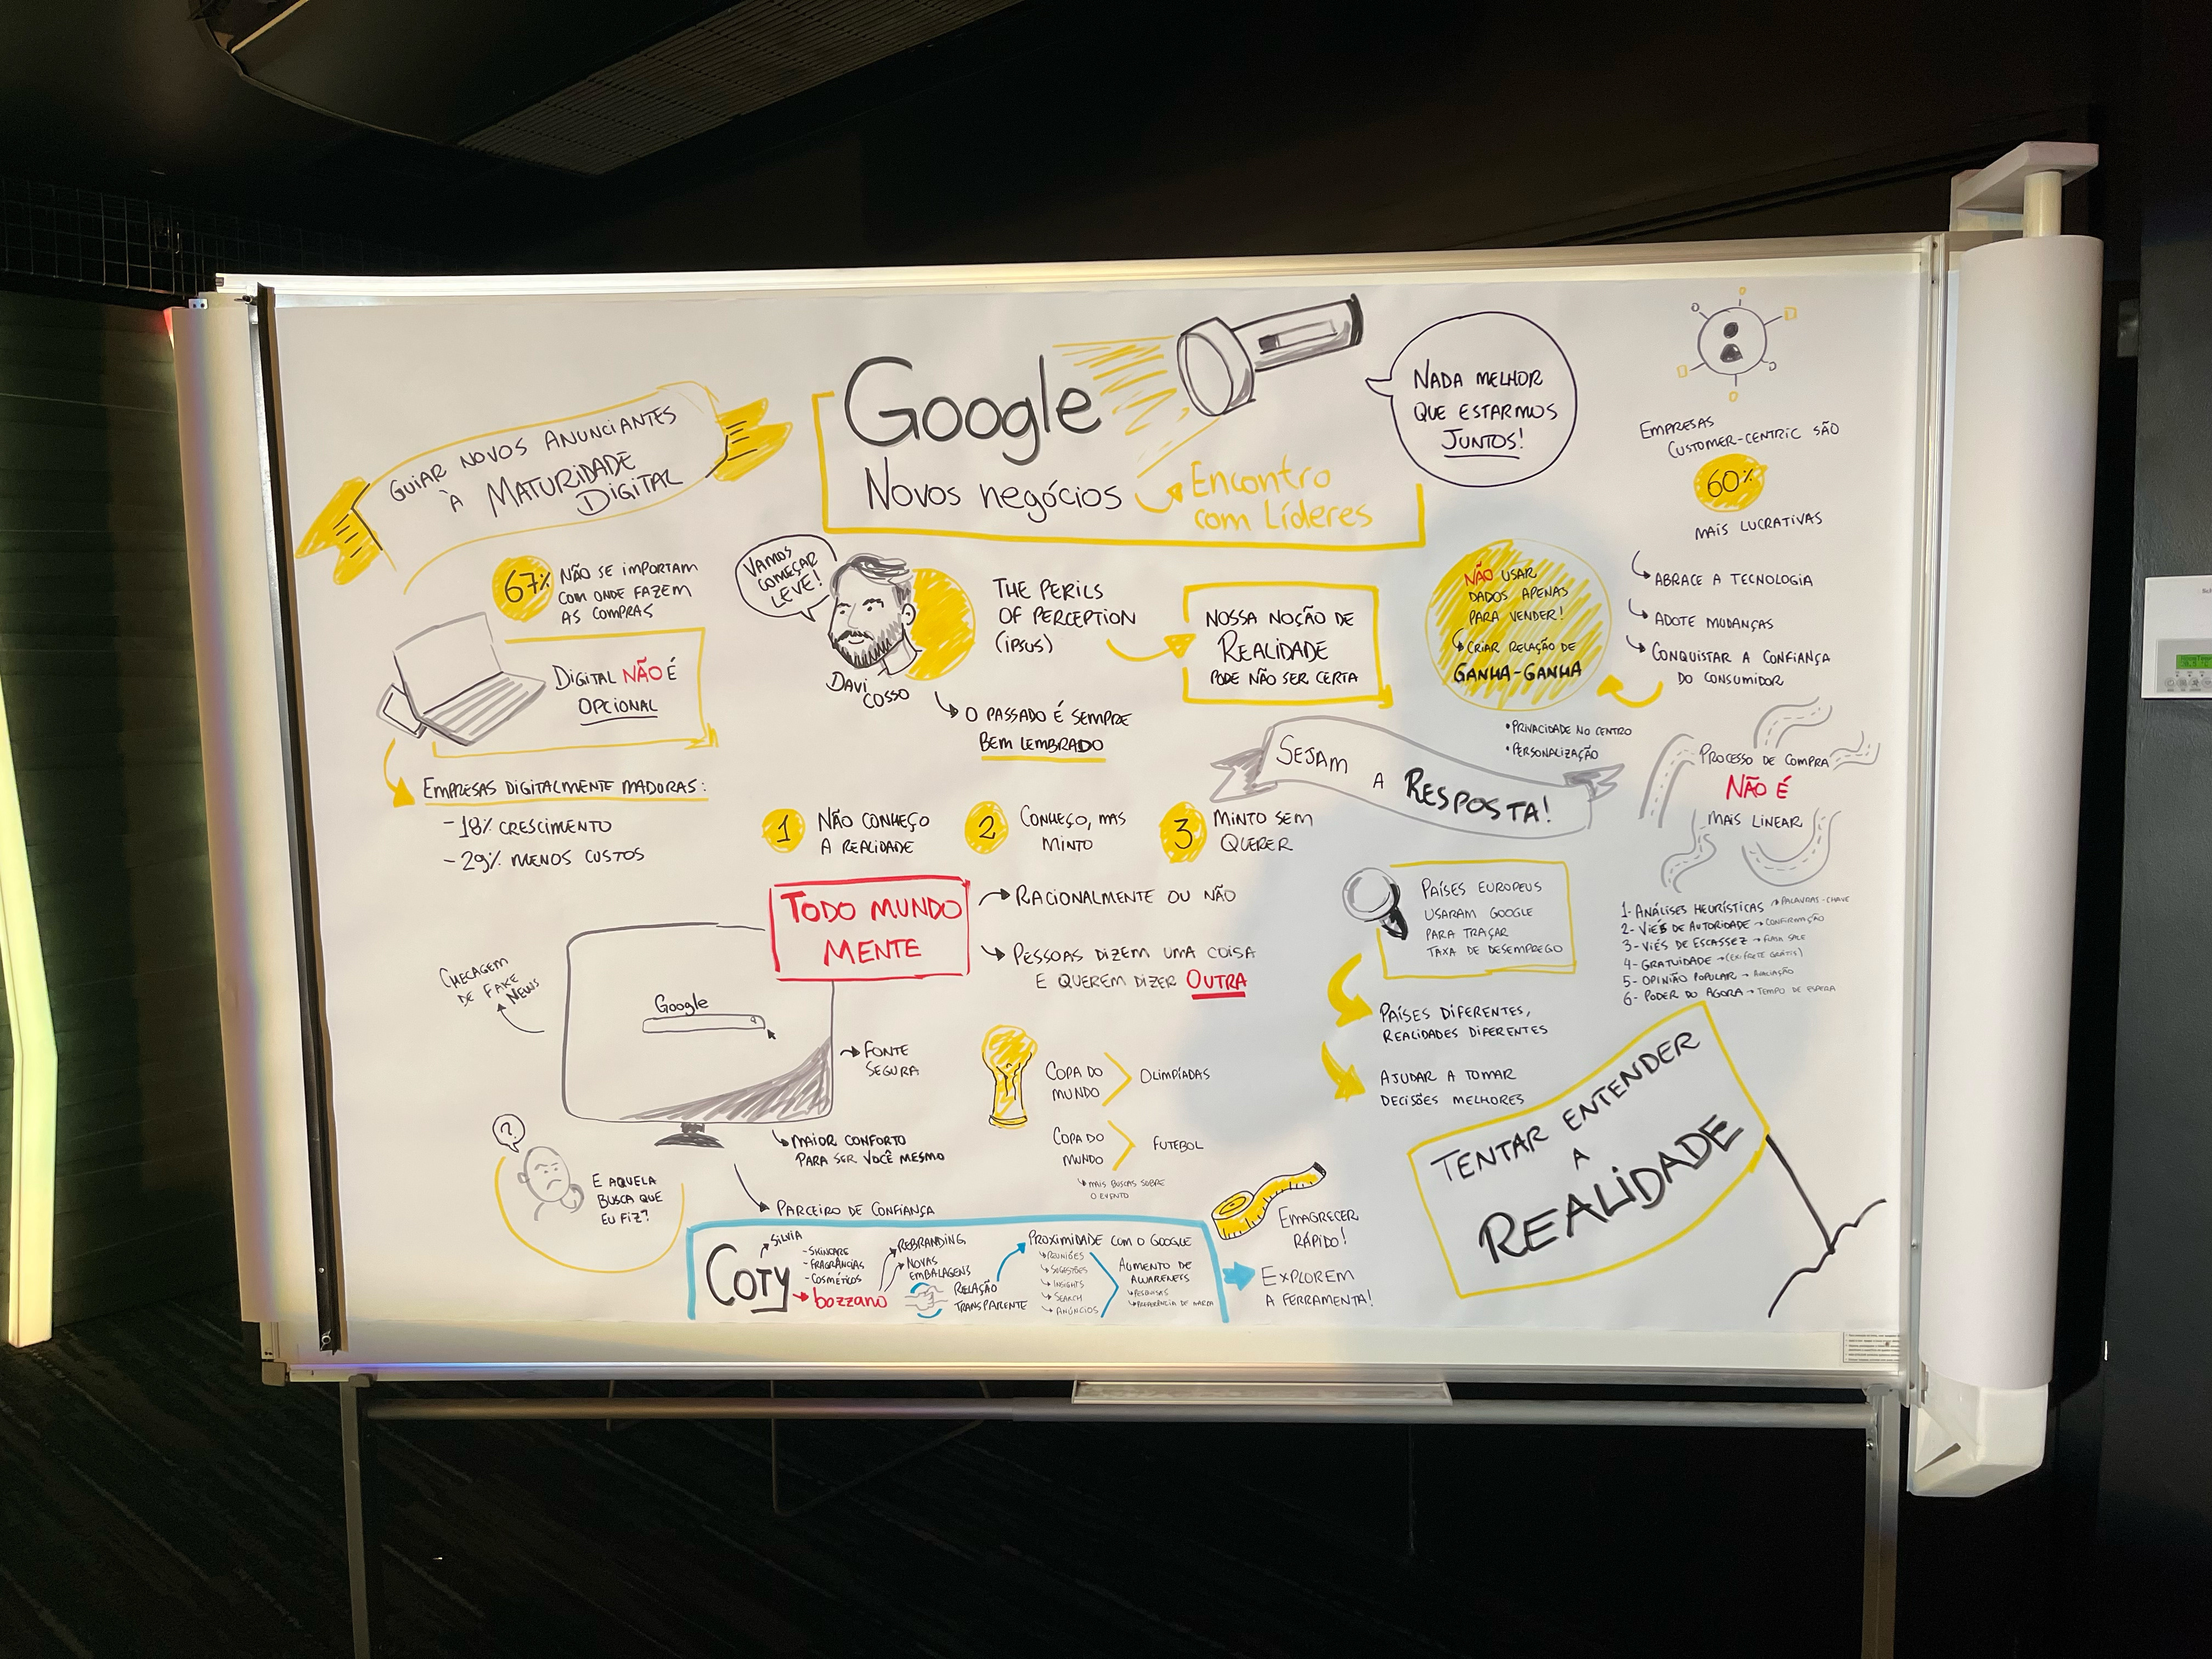 Google
Novos negócios
Encontro
com Líderes
NADA MELHOR
QUE ESTARMOS
JUNTOS!
GUIAR NOVOS ANUNCIANTES
À MATURIDADE
DIGITAL
67%
NÃO SE IMPORTAM
COM ONDE FAZEM
AS COMPRAS
DIGITAL NÃO É
OPCIONAL
EMPRESAS DIGITALMENTE MADORAS:
- 18% CRESCIMENTO
- 29% MENOS CUSTOS
VAMOS
COMEÇAR
LEVE!
DAVI
COSSO
THE PERILS
OF PERCEPTION
(IPSUS)
NOSSA NOÇÃO DE
REALIDADE
PODE NÃO SER CERTA
O PASSADO É SEMPRE
BEM LEMBRADO
1
NÃO CONHEÇO
A REALIDADE
2
CONHEÇO, MAS
MINTO
3
MINTO SEM
QUERER
TODO MUNDO
MENTE
RACIONALMENTE OU NÃO
PESSOAS DIZEM UMA COISA
E QUEREM DIZER OUTRA
CHECAGEM
DE FAKE
NEWS
Google
FONTE
SEGURA
MAIOR CONFORTO
PARA SER VOCÊ MESMO
PARCEIRO DE CONFIANÇA
?
E AQUELA
BUSCA QUE
EU FIZ?
COPA DO
MUNDO
OLIMPÍADAS
COPA DO
MUNDO
FUTEBOL
MAIS BUSCAS SOBRE
O EVENTO
EMAGRECER
RÁPIDO!
COTY
SILVIA
- SKINCARE
- FRAGRÂNCIAS
- COSMÉTICOS
bozzano
REBRANDING
NOVAS
EMBALAGENS
RELAÇÃO
TRANSPARENTE
PROXIMIDADE COM O GOOGLE
REUNIÕES
SUGESTÕES
INSIGHTS
SEARCH
ANÚNCIOS
AUMENTO DE
AWARENESS
PESQUISAS
PREFERÊNCIA DE MARCA
EXPLOREM
A FERRAMENTA!
EMPRESAS
CUSTOMER-CENTRIC SÃO
60%
MAIS LUCRATIVAS
ABRACE A TECNOLOGIA
ADOTE MUDANÇAS
CONQUISTAR A CONFIANÇA
DO CONSUMIDOR
NÃO USAR
DADOS APENAS
PARA VENDER!
CRIAR RELAÇÃO DE
GANHA-GANHA
• PRIVACIDADE NO CENTRO
• PERSONALIZAÇÃO
SEJAM
A RESPOSTA!
PROCESSO DE COMPRA
NÃO É
MAIS LINEAR
1- ANÁLISES HEURÍSTICAS → PALAVRAS-CHAVE
2- VIÉS DE AUTORIDADE → CONFIRMAÇÃO
3- VIÉS DE ESCASSEZ → FLASH SALE
4- GRATUIDADE → (EX: FRETE GRÁTIS)
5- OPINIÃO POPULAR → AVALIAÇÃO
6- PODER DO AGORA → TEMPO DE ESPERA
PAÍSES EUROPEUS
USARAM GOOGLE
PARA TRAÇAR
TAXA DE DESEMPREGO
PAÍSES DIFERENTES,
REALIDADES DIFERENTES
AJUDAR A TOMAR
DECISÕES MELHORES
TENTAR ENTENDER
A
REALIDADE